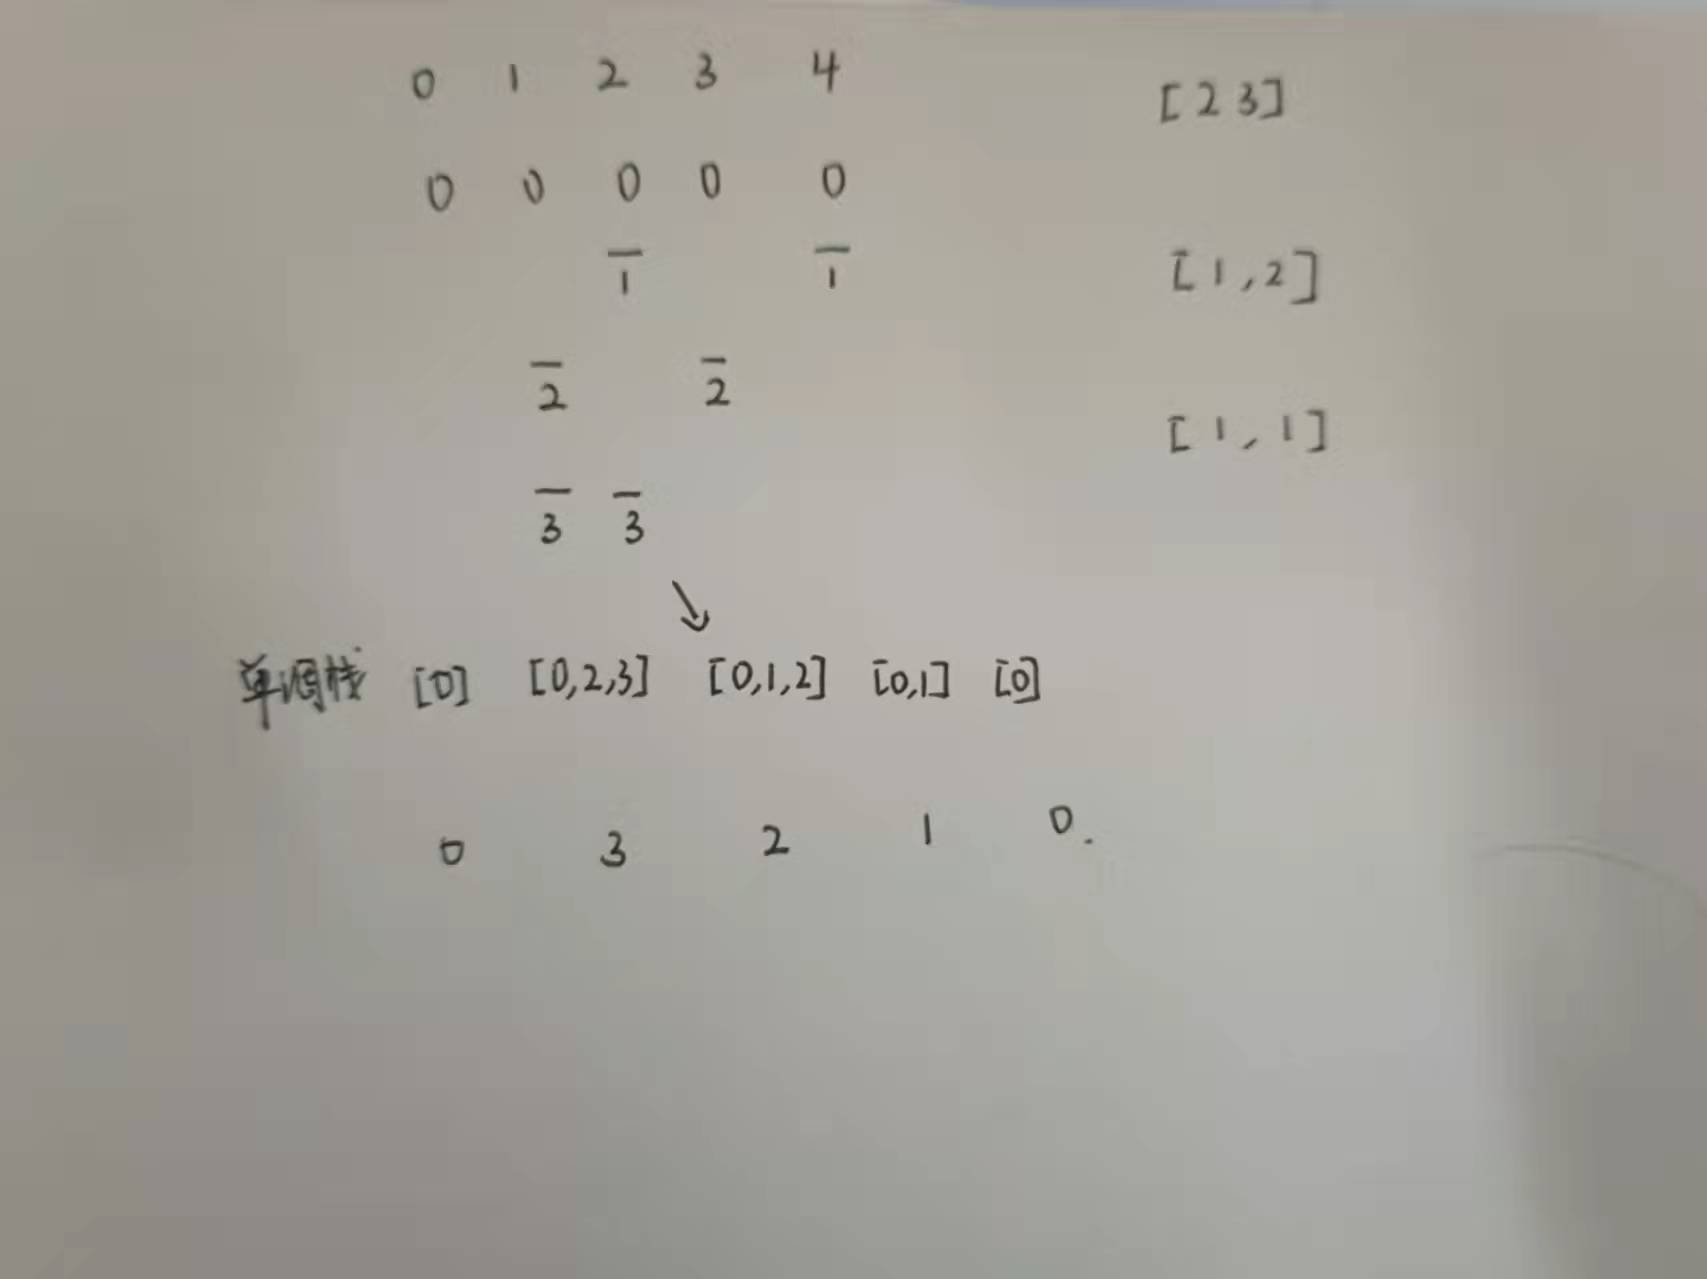 0 1 2 3 4 [2 3]
0 0 0 0 0
1 1 [1,2]
2 2
[1,1]
3 3
↘
单调栈 [0] [0,2,3] [0,1,2] [0,1] [0]
0 3 2 1 0.